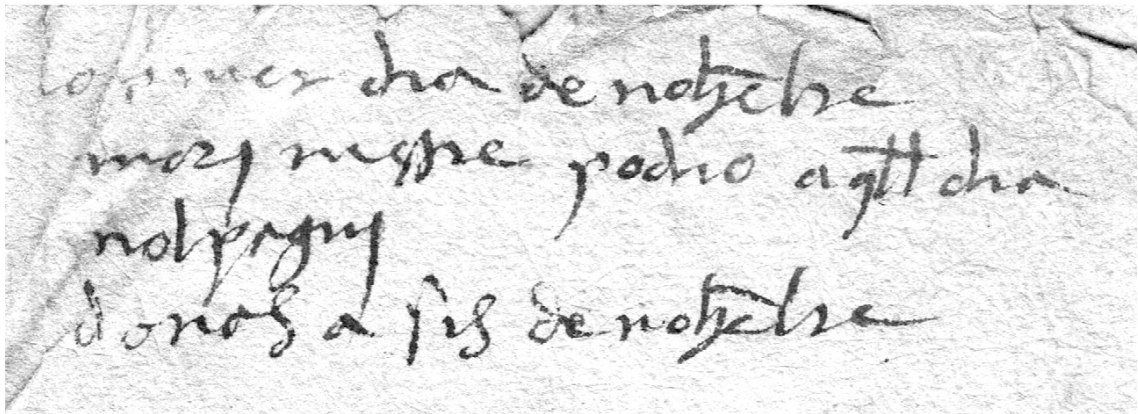 lo primer dia de noēbre
mori mestre pedro aqll dia
nol paguj
donas a sis de noēbre